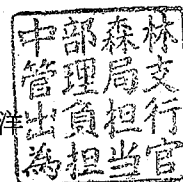 洋
中部森林
管理局支
出負担行
為担当官